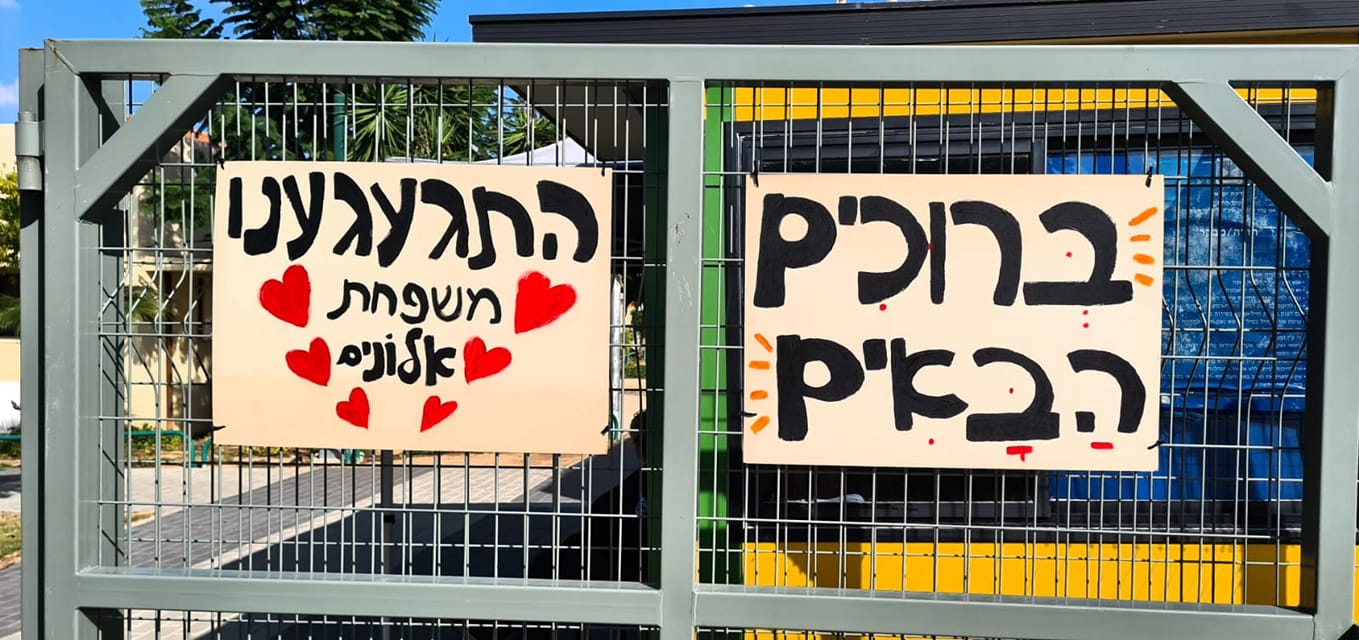 בְּרוּכִים
הַבָּאִים
התגעגענו
משפחת
אלוֹנים